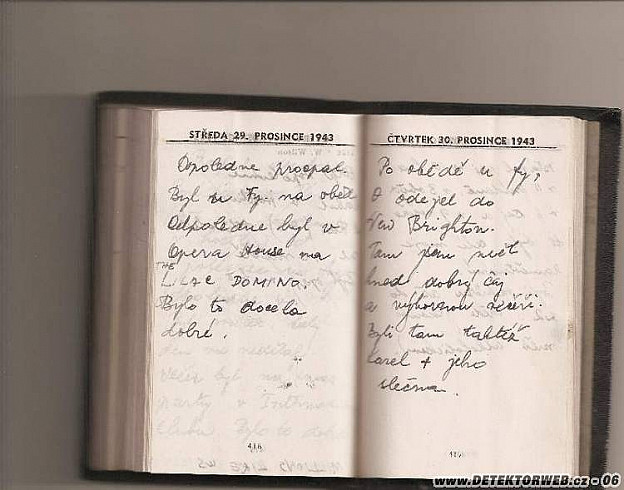 STŘEDA 29. PROSINCE 1943
Dopoledne prospal.
Byl u Fy. na oběd
Odpoledne byl v
Opera House na
THE
LILAC DOMINO.
Bylo to docela
dobré.
416
ČTVRTEK 30. PROSINCE 1943
Po obědě u fy,
odejel do
New Brighton.
Tam jsem měl
hned dobrý čaj
a výbornou večeři.
Byli tam taktéž
Karel + jeho
slečna.
WWW.DETEKTORWEB.CZ 06